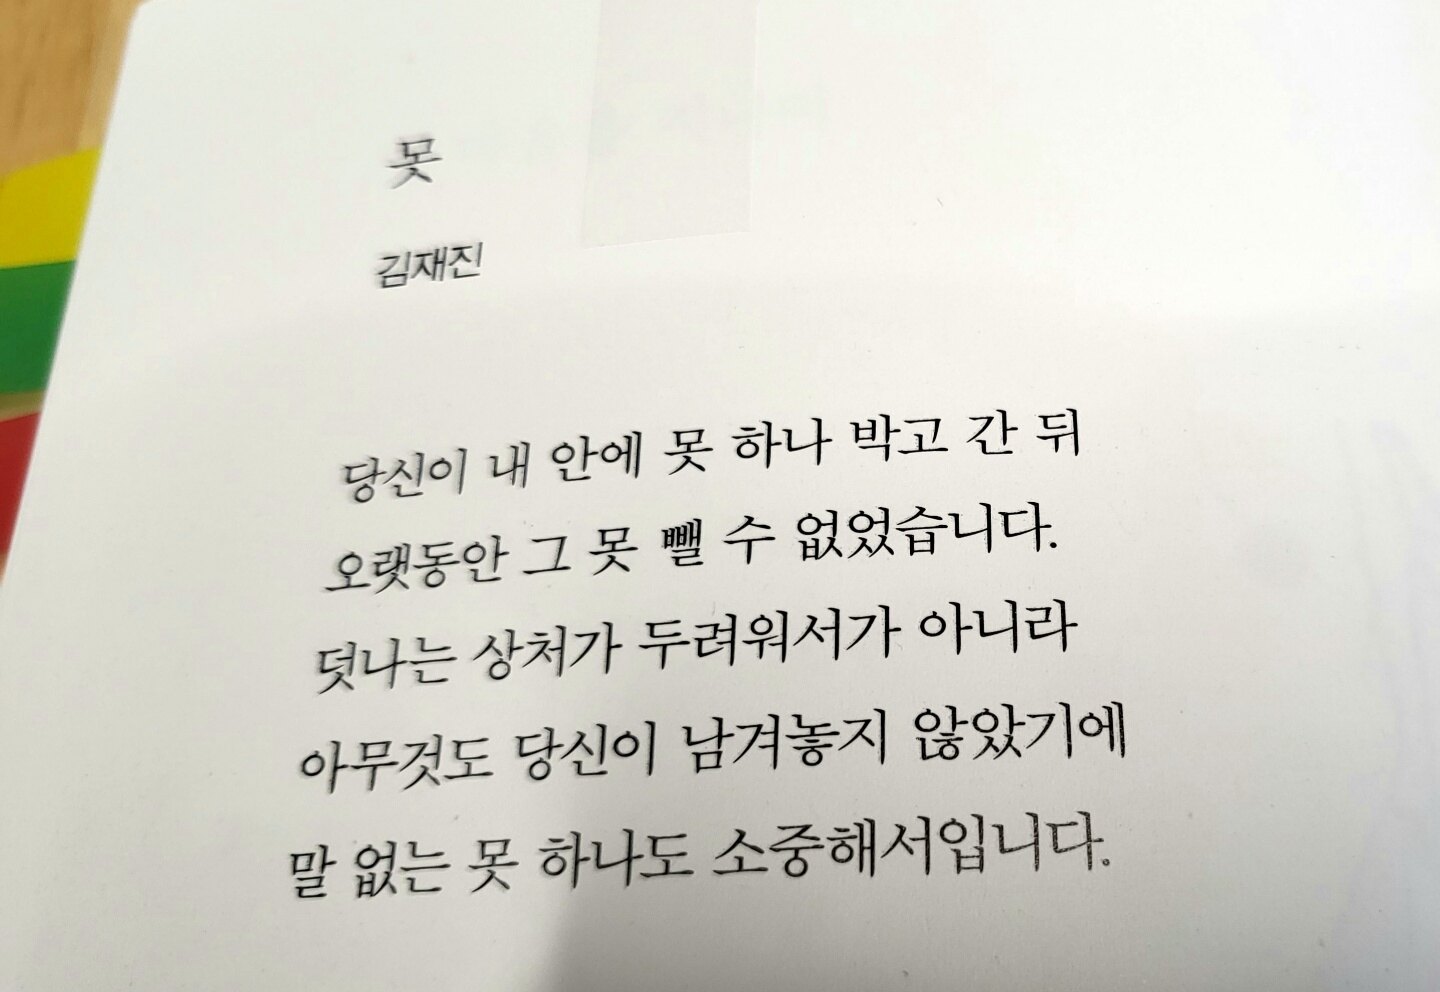 못
김재진
당신이 내 안에 못 하나 박고 간 뒤
오랫동안 그 못 뺄 수 없었습니다.
덧나는 상처가 두려워서가 아니라
아무것도 당신이 남겨놓지 않았기에
말 없는 못 하나도 소중해서입니다.